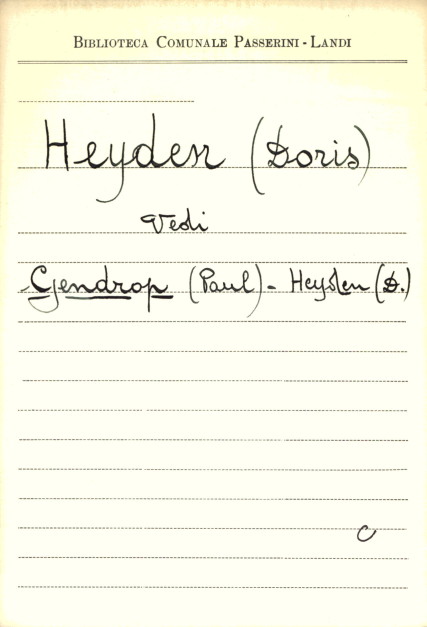 BIBLIOTECA COMUNALE PASSERINI - LANDI
Heyden (Doris)
Vedi
Gendrop (Paul) - Heyden (D.)
C